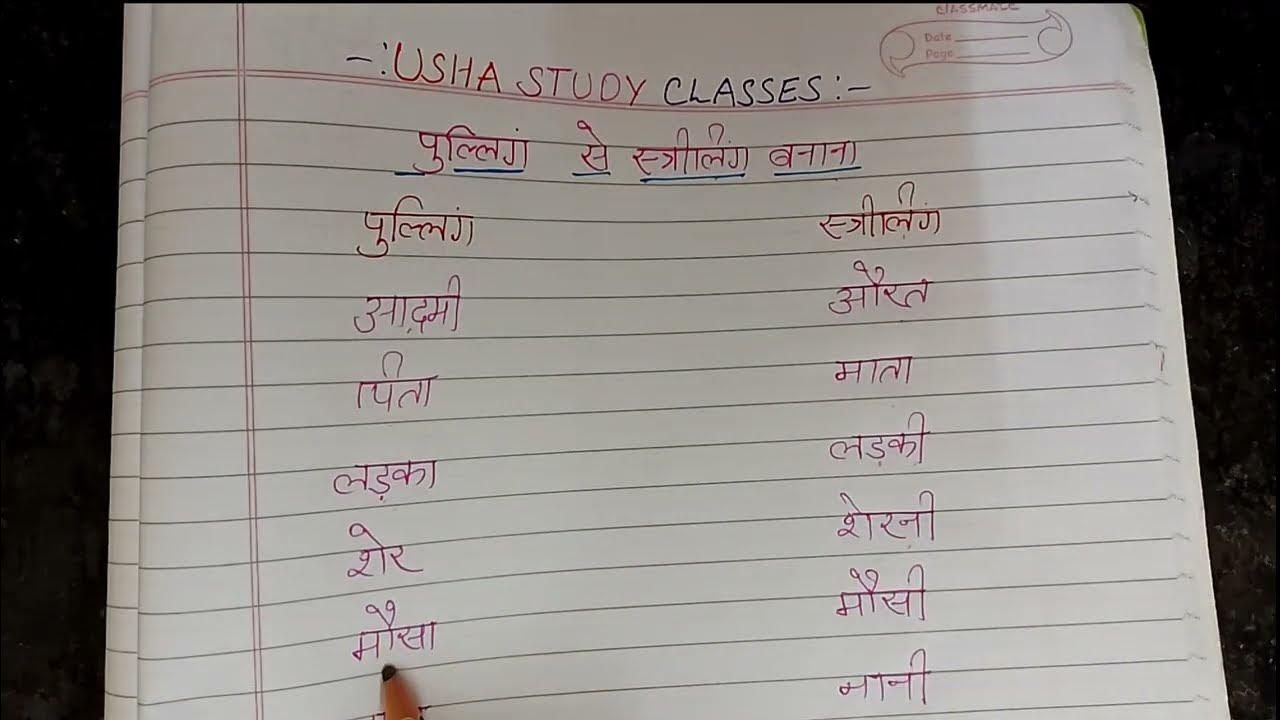 CLASSMATE
Date
Page
-:USHA STUDY CLASSES:-
पुल्लिंग से स्त्रीलिंग बनाना
पुल्लिंग स्त्रीलिंग
आदमी औरत
पिता माता
लड़का लड़की
शेर शेरनी
मौसा मौसी